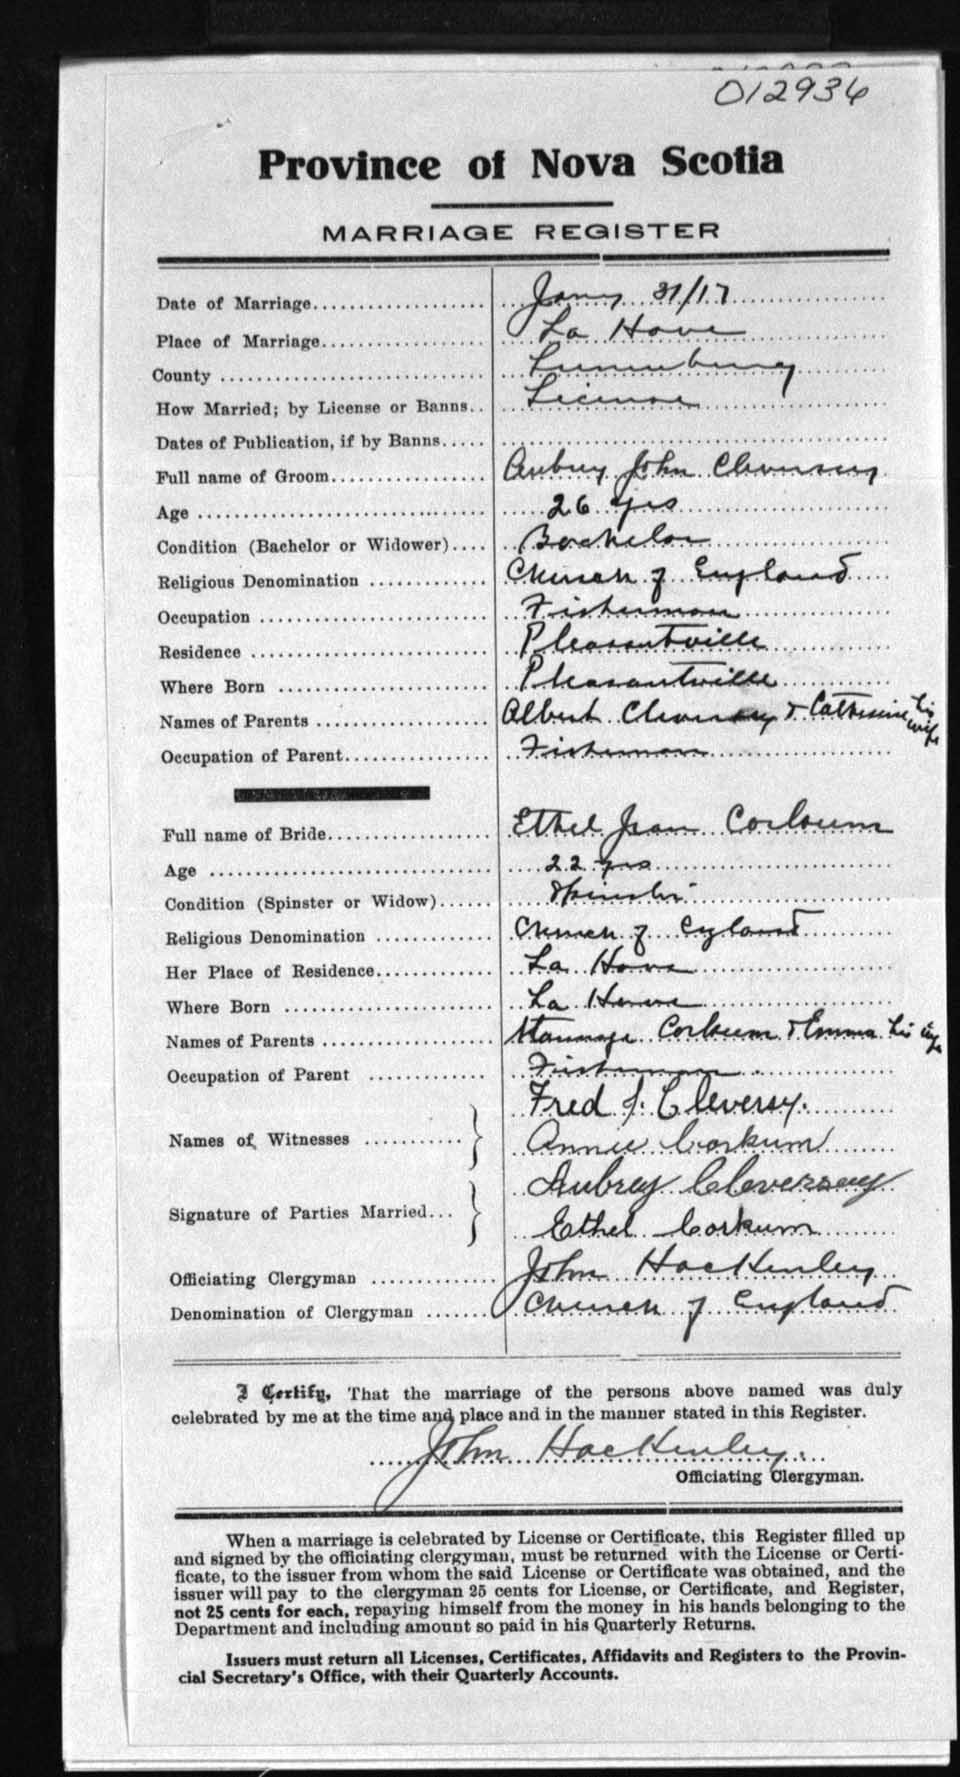 012936
Province of Nova Scotia
MARRIAGE REGISTER
Date of Marriage Jany 31/17
Place of Marriage La Have
County Lunenburg
How Married; by License or Banns License
Dates of Publication, if by Banns
Full name of Groom Aubrey John Cleversey
Age 26 yrs
Condition (Bachelor or Widower) Bachelor
Religious Denomination Church of England
Occupation Fisherman
Residence Pleasantville
Where Born Pleasantville
Names of Parents Albert Cleversey & Catherine his wife
Occupation of Parent Fisherman
Full name of Bride Ethel Jean Corkum
Age 22 yrs
Condition (Spinster or Widow) Spinster
Religious Denomination Church of England
Her Place of Residence La Have
Where Born La Have
Names of Parents Corkum & Emma his wife
Occupation of Parent Fisherman
Names of Witnesses Fred J. Cleversy.
Annie Corkum
Signature of Parties Married Aubrey Cleversey
Ethel Corkum
Officiating Clergyman John HacKenley
Denomination of Clergyman Church of England
I Certify, That the marriage of the persons above named was duly
celebrated by me at the time and place and in the manner stated in this Register.
John HacKenley.
Officiating Clergyman.
When a marriage is celebrated by License or Certificate, this Register filled up
and signed by the officiating clergyman, must be returned with the License or Certi-
ficate, to the issuer from whom the said License or Certificate was obtained, and the
issuer will pay to the clergyman 25 cents for License, or Certificate, and Register,
not 25 cents for each, repaying himself from the money in his hands belonging to the
Department and including amount so paid in his Quarterly Returns.
Issuers must return all Licenses, Certificates, Affidavits and Registers to the Provin-
cial Secretary's Office, with their Quarterly Accounts.